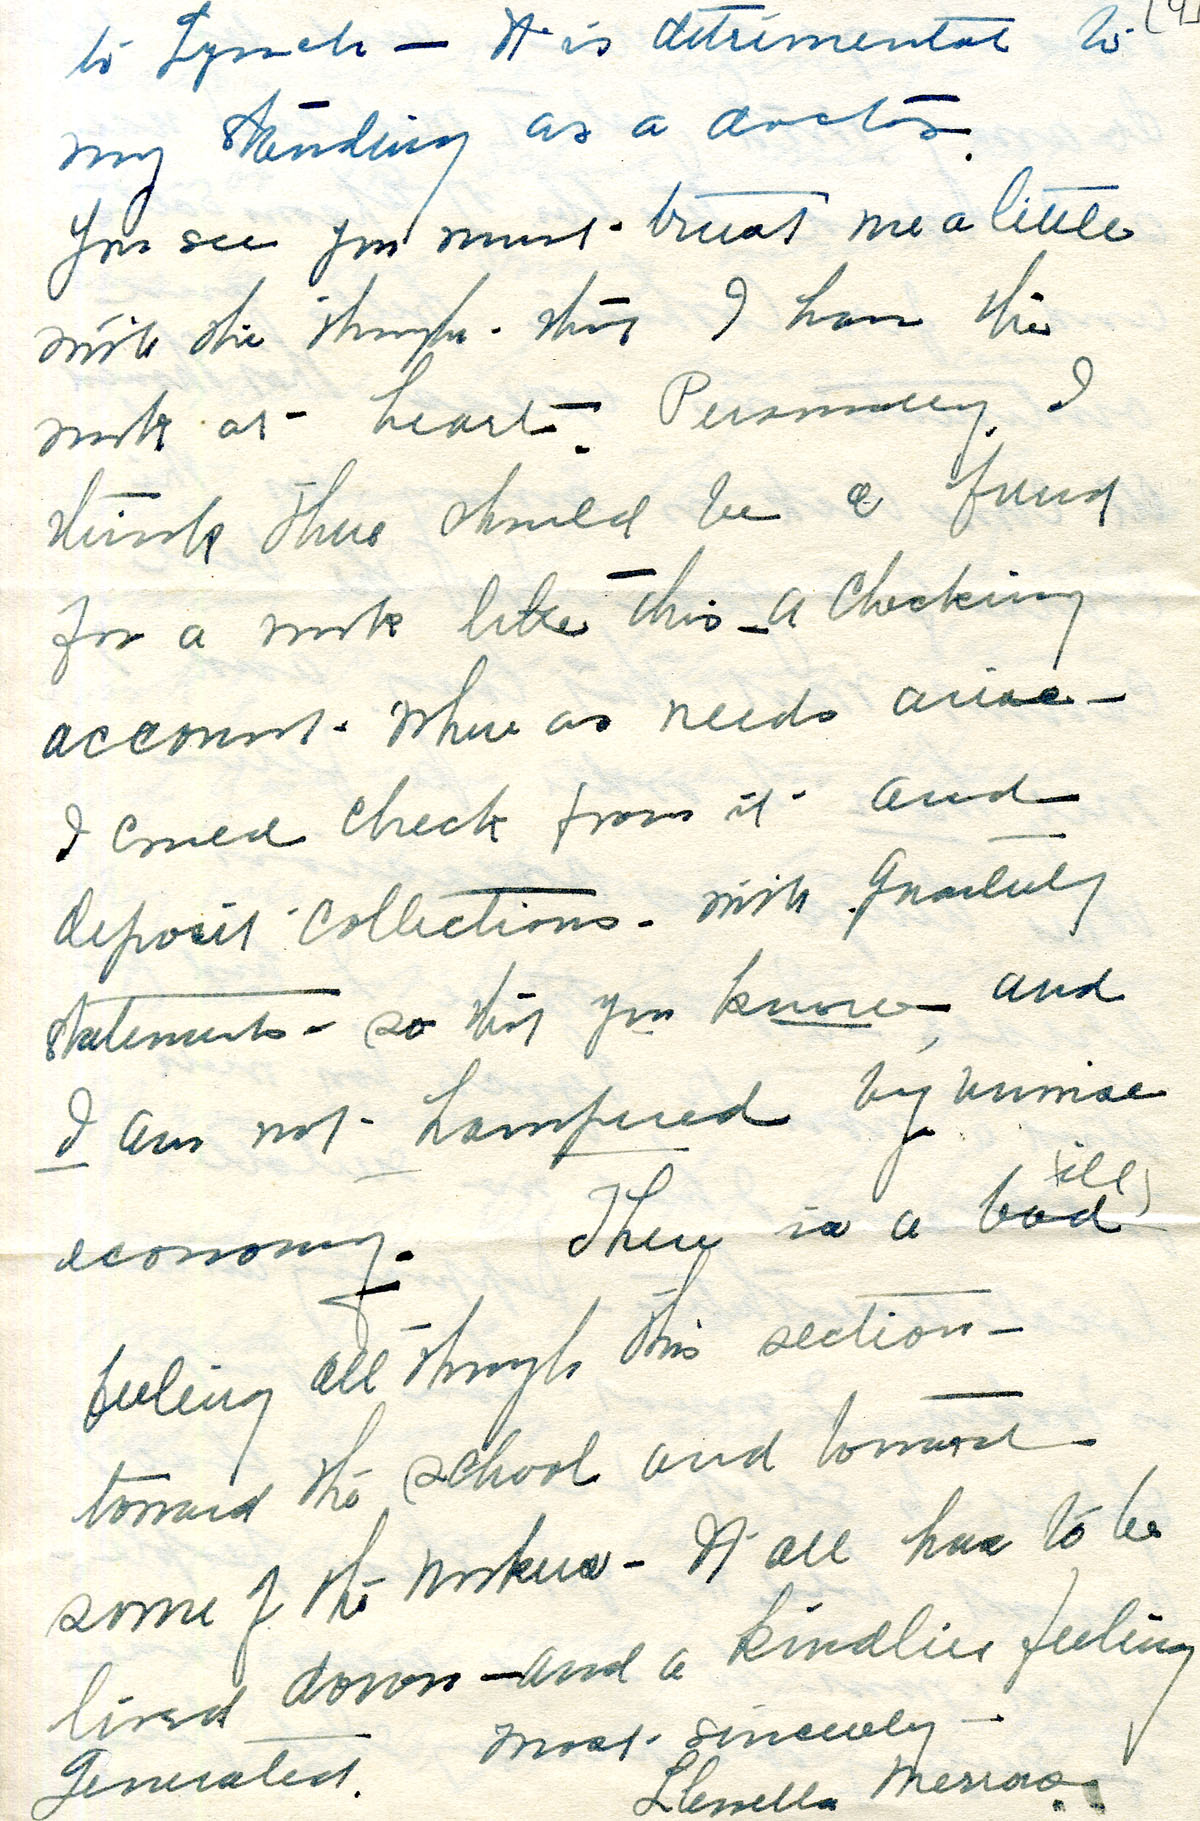 (4)
to Lynch — It is detrimental to
my standing as a doctor.
You see you must trust me a little
with the though. that I have the
work at heart. Personally, I
think there should be a fund
for a work like this - a checking
account. Where as needs arise -
I could check from it and
deposit collections - with quarterly
statements - so that you know, and
I am not hampered by unwise
economy. There is a bad (ill)
feeling all through this section -
toward the school and toward
some of the workers - It all has to be
lived down - and a kindlier feeling
Generated. Most sincerely -